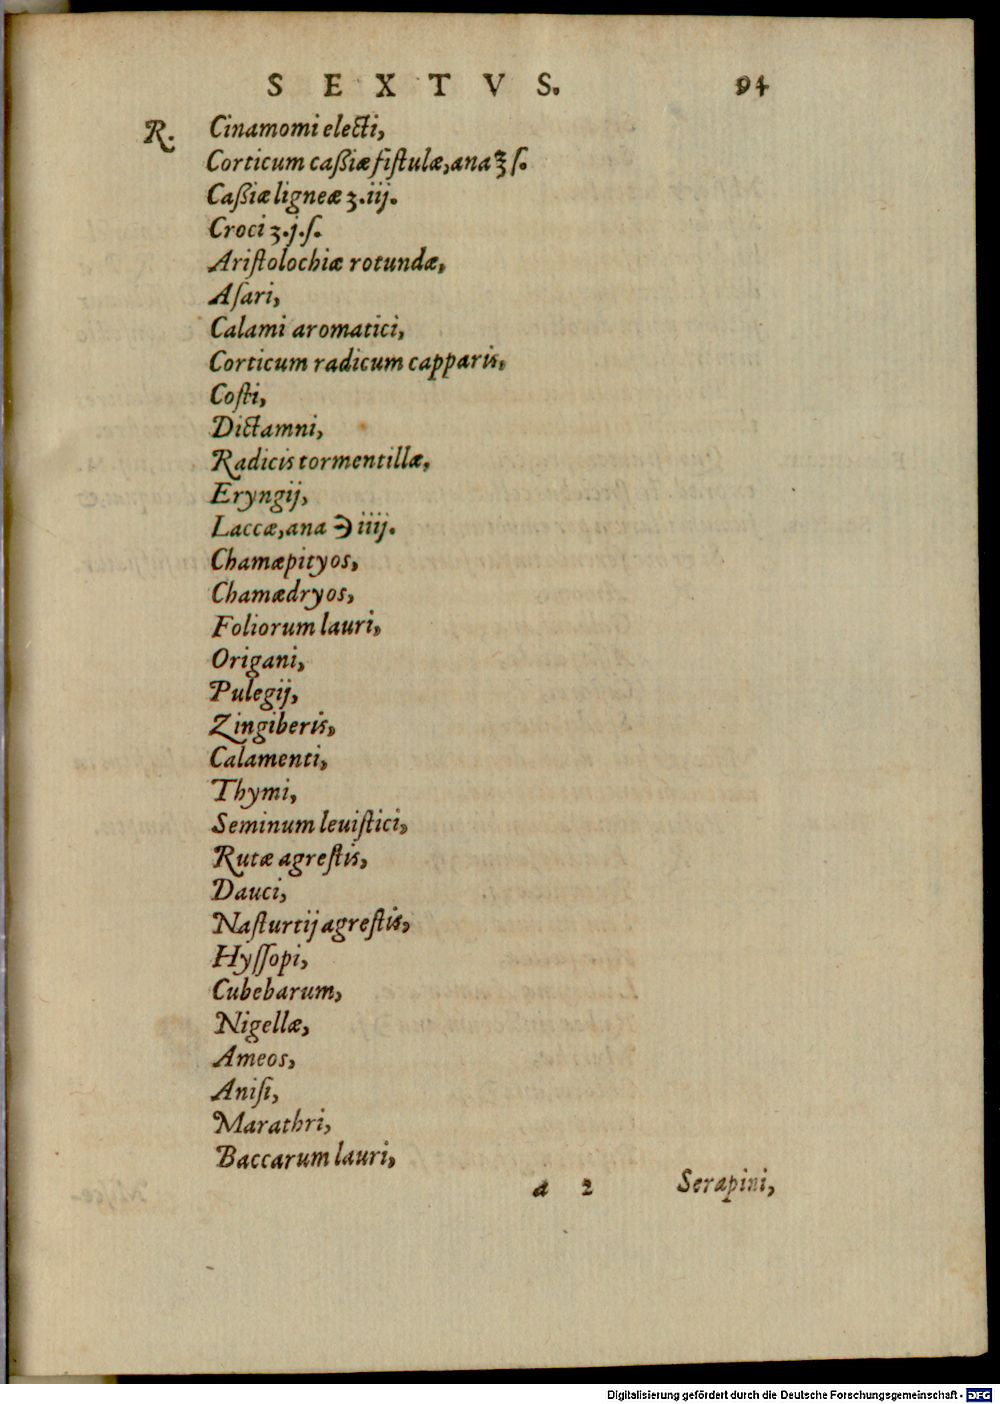 SEXTVS. 94
R. Cinamomi electi,
Corticum caßiæ fistulæ, ana ℥ ſ.
Caßiæ ligneæ ʒ.iij.
Croci ʒ.j.ſ.
Aristolochiæ rotundæ,
Asari,
Calami aromatici,
Corticum radicum capparis,
Costi,
Dictamni,
Radicis tormentillæ,
Eryngij,
Laccæ, ana ℈ iiij.
Chamæpityos,
Chamædryos,
Foliorum lauri,
Origani,
Pulegij,
Zingiberis,
Calamenti,
Thymi,
Seminum leuistici,
Rutæ agrestis,
Dauci,
Nasturtij agrestis,
Hyssopi,
Cubebarum,
Nigellæ,
Ameos,
Anisi,
Marathri,
Baccarum lauri,
a 2 Serapini,
Digitalisierung gefördert durch die Deutsche Forschungsgemeinschaft - DFG